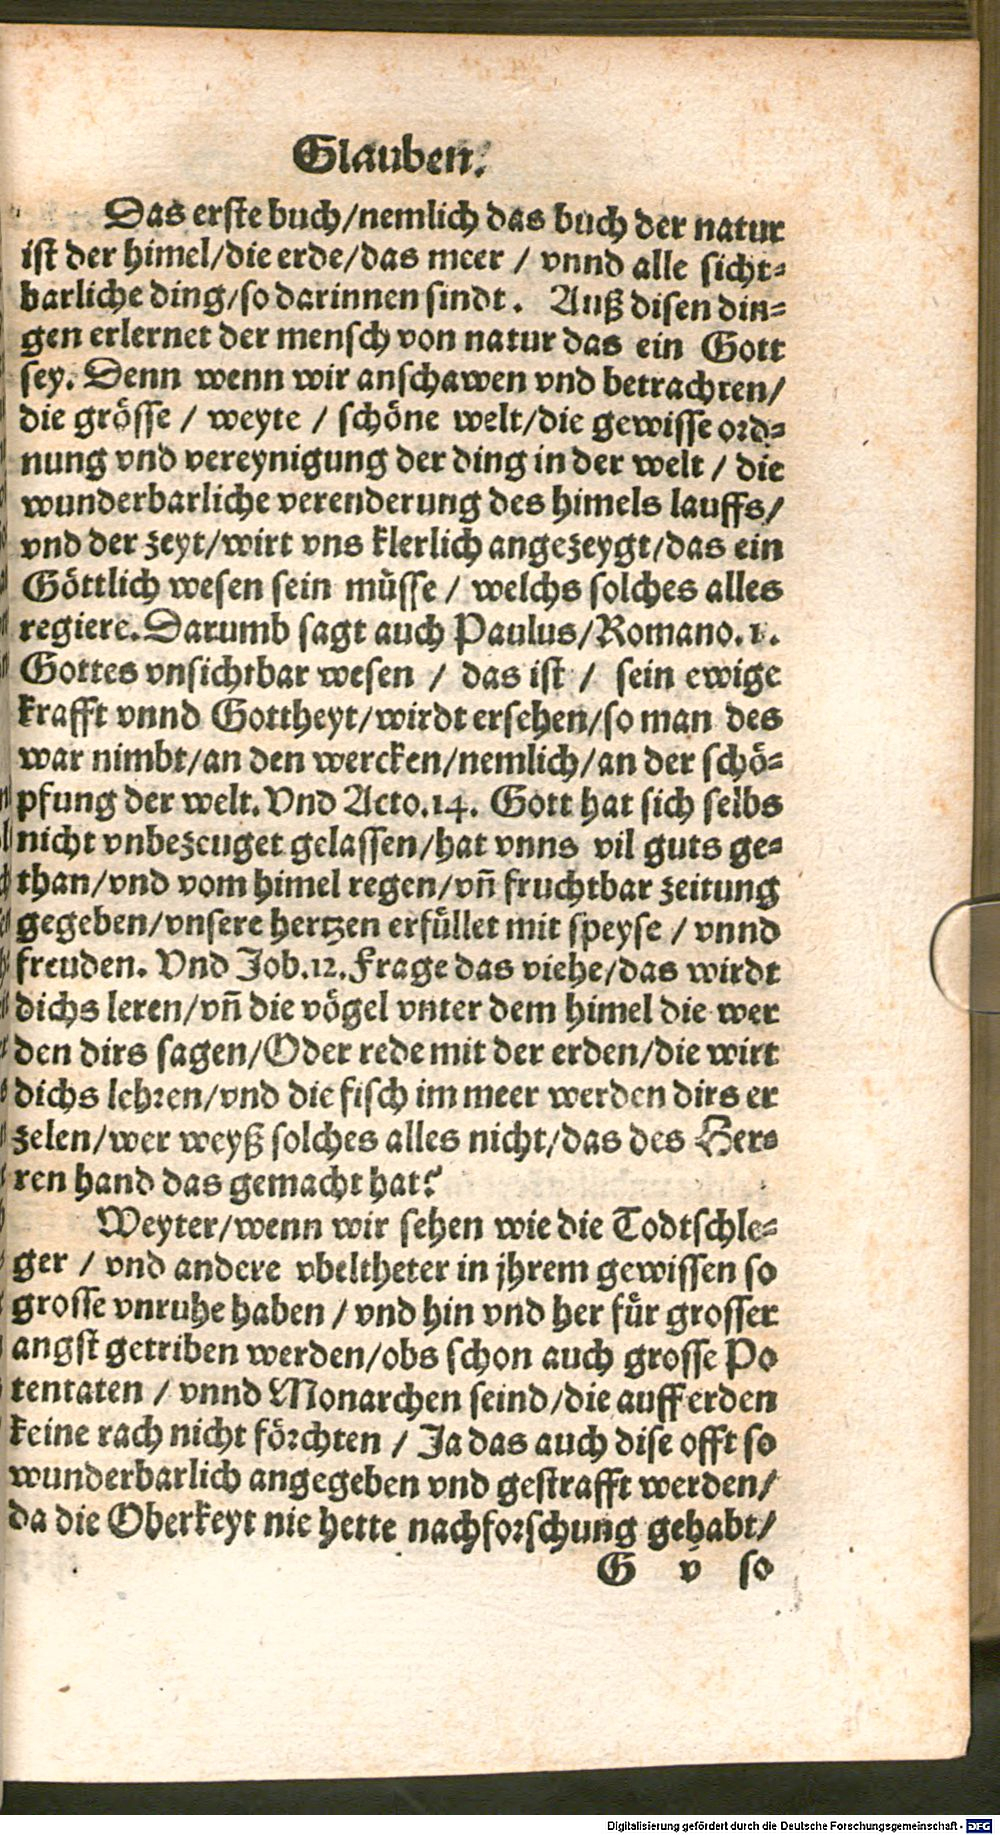 Glauben.
Das erste buch/nemlich das buch der natur
ist der himel/die erde/das meer / vnnd alle sicht-
barliche ding/so darinnen sindt. Auß disen din-
gen erlernet der mensch von natur das ein Gott
sey. Denn wenn wir anschawen vnd betrachten/
die grösse / weyte / schöne welt/die gewisse ord-
nung vnd vereynigung der ding in der welt / die
wunderbarliche verenderung des himels lauffs/
vnd der zeyt/wirt vns klerlich angezeygt/das ein
Göttlich wesen sein müsse / welchs solches alles
regiere. Darumb sagt auch Paulus/Romano.1.
Gottes vnsichtbar wesen / das ist / sein ewige
krafft vnnd Gottheyt/wirdt ersehen/so man des
war nimbt/an den wercken/nemlich/an der schö-
pfung der welt. Vnd Acto.14. Gott hat sich selbs
nicht vnbezeuget gelassen/hat vnns vil guts ge-
than/vnd vom himel regen/vñ fruchtbar zeitung
gegeben/vnsere hertzen erfüllet mit speyse / vnnd
freuden. Vnd Job.12. Frage das viehe/das wirdt
dichs leren/vñ die vögel vnter dem himel die wer
den dirs sagen/Oder rede mit der erden/die wirt
dichs lehren/vnd die fisch im meer werden dirs er
zelen/wer weyß solches alles nicht/das des Her-
ren hand das gemacht hat?
Weyter/wenn wir sehen wie die Todtschle-
ger / vnd andere vbeltheter in jhrem gewissen so
grosse vnruhe haben / vnd hin vnd her für grosser
angst getriben werden/obs schon auch grosse Po
tentaten / vnnd Monarchen seind/die auff erden
keine rach nicht förchten / Ja das auch dise offt so
wunderbarlich angegeben vnd gestrafft werden/
da die Oberkeyt nie hette nachforschung gehabt/
G v so
Digitalisierung gefördert durch die Deutsche Forschungsgemeinschaft - DFG